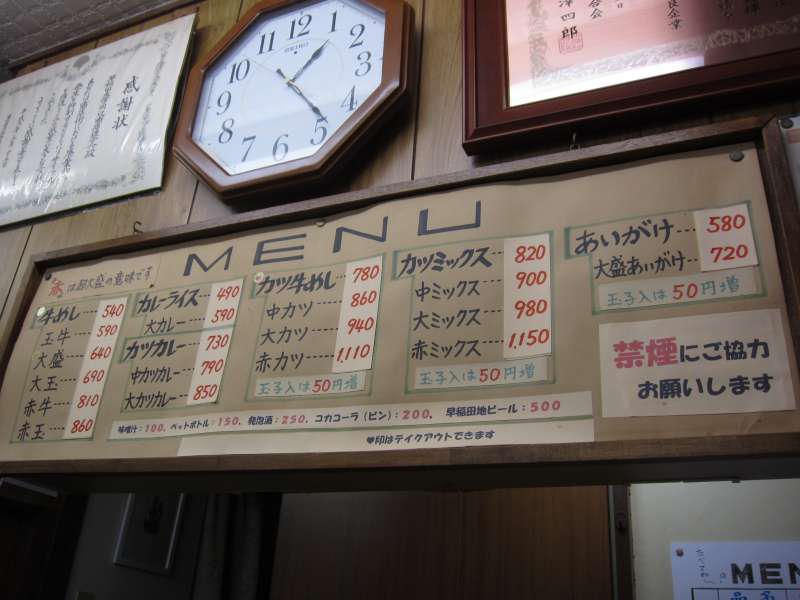 感謝状
12
1
2
3
4
5
6
7
8
9
10
11
SEIKO
澤四郎
MENU
赤は超大盛の意味です
牛めし…540
玉牛…590
大盛…640
大玉…690
赤牛…810
赤玉…860
カレーライス…490
大カレー…590
カツカレー…730
中カツカレー…790
大カツカレー…850
カツ牛めし…780
中カツ…860
大カツ…940
赤カツ…1,110
玉子入は50円増
カツミックス…820
中ミックス…900
大ミックス…980
赤ミックス…1,150
玉子入は50円増
あいがけ…580
大盛あいがけ…720
玉子入は50円増
禁煙にご協力
お願いします
味噌汁:100、ペットボトル:150、発泡酒:250、コカコーラ(ビン):200、早稲田地ビール:500
♥印はテイクアウトできます
MEN